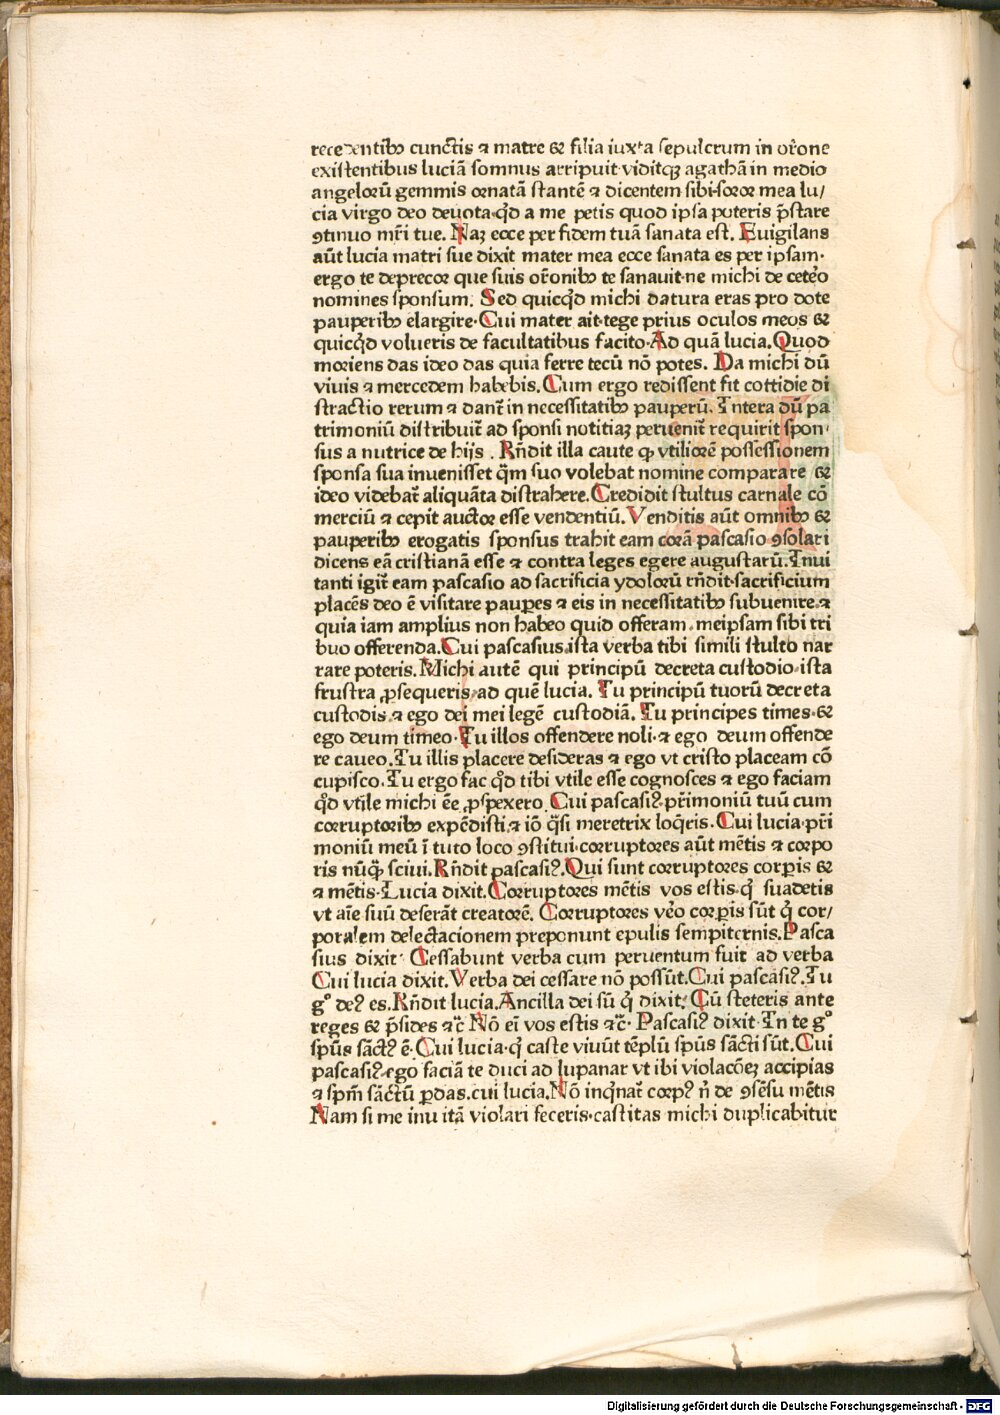 recedentibꝯ cunctis ⁊ matre & filia iuxta sepulcrum in ot̄one
existentibus luciā somnus arripuit viditqꝫ agathā in medio
angelorū gemmis ornatā stantē ⁊ dicentem sibi·soror mea lu/
cia virgo deo deuota·qd̄ a me petis quod ipsa poteris p̄stare
ꝯtinuo mr̄i tue. Naꝫ ecce per fidem tuā sanata est. Euigilans
aūt lucia matri sue dixit mater mea ecce sanata es per ipsam·
ergo te deprecor que suis or̄onibꝯ te sanauit·ne michi de ceteo̾
nomines sponsum. Sed quicqd̄ michi datura eras pro dote
pauperibꝯ elargire·Cui mater ait·tege prius oculos meos &
quicqd̄ volueris de facultatibus facito·Ad quā lucia.Quod
moriens das ideo das quia ferre tecū nō potes. Da michi dū
viuis ⁊ mercedem habebis.Cum ergo redissent fit cottidie di
stractio rerum ⁊ dant̄ in necessitatibꝯ pauperū. Intera dū pa
trimoniū distribuit̄ ad sponsi notitiaꝫ peruenit̄ requirit spon·
sus a nutrice de hijs . Rn̄dit illa caute ꝙ vtiliorē possessionem
sponsa sua inuenisset qm̄ suo volebat nomine comparare &
ideo videbat̄ aliquāta distrahere.Credidit stultus carnale cō
merciū ⁊ cepit auctor esse vendentiū.Venditis aūt omnibꝯ &
pauperibꝯ erogatis sponsus trahit eam corā pascasio ꝯsolari
dicens eā cristianā esse ⁊ contra leges egere augustarū.Inui
tanti igit̄ eam pascasio ad sacrificia ydolorū rn̄dit·sacrificium
placēs deo ē visitare paupes ⁊ eis in necessitatibꝯ subuenire.⁊
quia iam amplius non habeo quid offeram·meipsam sibi tri
buo offerenda.Cui pascasius·ista verba tibi simili stulto nar
rare poteris.Michi autē qui principū decreta custodio·ista
frustra ꝓsequeris·ad quē lucia. Tu principū tuorū decreta
custodis·⁊ ego dei mei legē custodiā. Tu principes times·&
ego deum timeo·Tu illos offendere noli·⁊ ego deum offende
re caueo.Tu illis placere desideras ⁊ ego vt cristo placeam cō
cupisco.Tu ergo fac qd̄ tibi vtile esse cognosces ⁊ ego faciam
qd̄ vtile michi ēe ꝓspexero Cui pascasiꝰ·pr̄imoniū tuū cum
corruptoribꝯ expēdisti·⁊ iō qs̄i meretrix loqr̄is·Cui lucia·pr̄i
moniū meū ī tuto loco ꝯstitui·corruptores aūt mētis ⁊ corpo
ris nūq̄ꝫ sciui.Rn̄dit pascasiꝰ.Qui sunt corruptores corꝑis &
⁊ mētis·Lucia dixit.Corruptores mētis vos estis·q̄ suadetis
vt aīe suū deserāt creatorē. Corruptores veo̾ corꝑis sūt q̄ cor/
poralem delectacionem preponunt epulis sempiternis.Pasca
sius dixit· Cessabunt verba cum peruentum fuit ad verba
Cui lucia dixit.Verba dei cessare nō possūt.Cui pascasiꝰ.Tu
gͦ deꝰ es.Rn̄dit lucia.Ancilla dei sū q̄ dixit· Cū steteris ante
reges & p̄sides ⁊c̄ Nō eī vos estis ⁊c̄· Pascasiꝰ dixit·In te gͦ
spūs sāctꝰ ē·Cui lucia·q̄ caste viuūt tēplū spūs sācti sūt.Cui
pascasiꝰ·ego faciā te duci ad lupanar vt ibi violacōeꝫ accipias
⁊ spm̄ sāctū ꝑdas.cui lucia.Nō inqnat̄ corpꝰ n̄ de ꝯsēsu mētis
Nam si me inuitā violari feceris·castitas michi duplicabitur
Digitalisierung gefördert durch die Deutsche Forschungsgemeinschaft - DFG